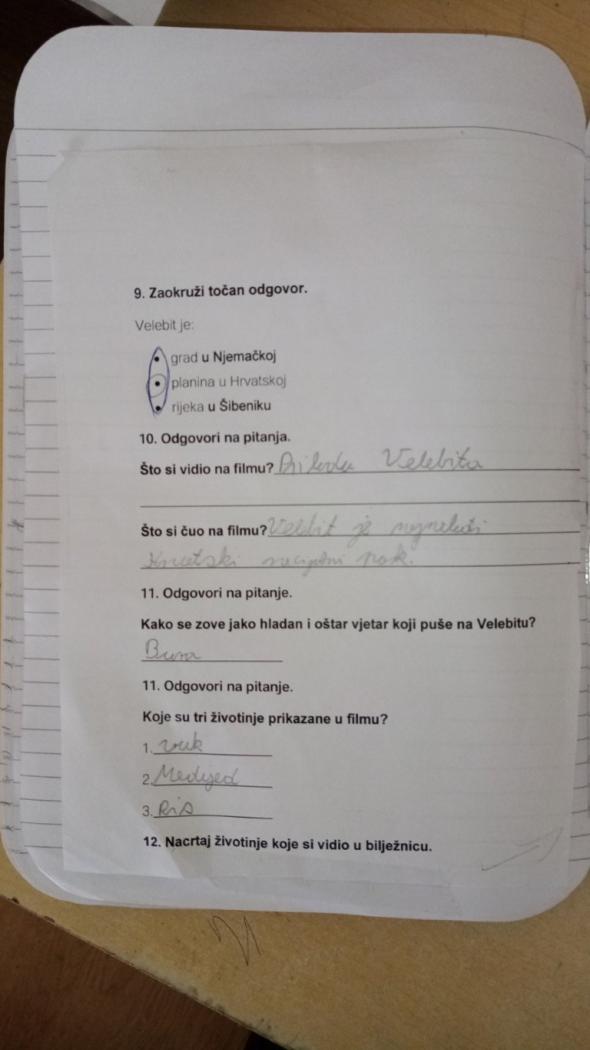 9. Zaokruži točan odgovor.
Velebit je:
• grad u Njemačkoj
• planina u Hrvatskoj
• rijeka u Šibeniku
10. Odgovori na pitanja.
Što si vidio na filmu? Prirodu Velebita
Što si čuo na filmu? Velebit je
Hrvatski park.
11. Odgovori na pitanje.
Kako se zove jako hladan i oštar vjetar koji puše na Velebitu?
Bura
11. Odgovori na pitanje.
Koje su tri životinje prikazane u filmu?
1. vuk
2. Medvjed
3. Ris
12. Nacrtaj životinje koje si vidio u bilježnicu.